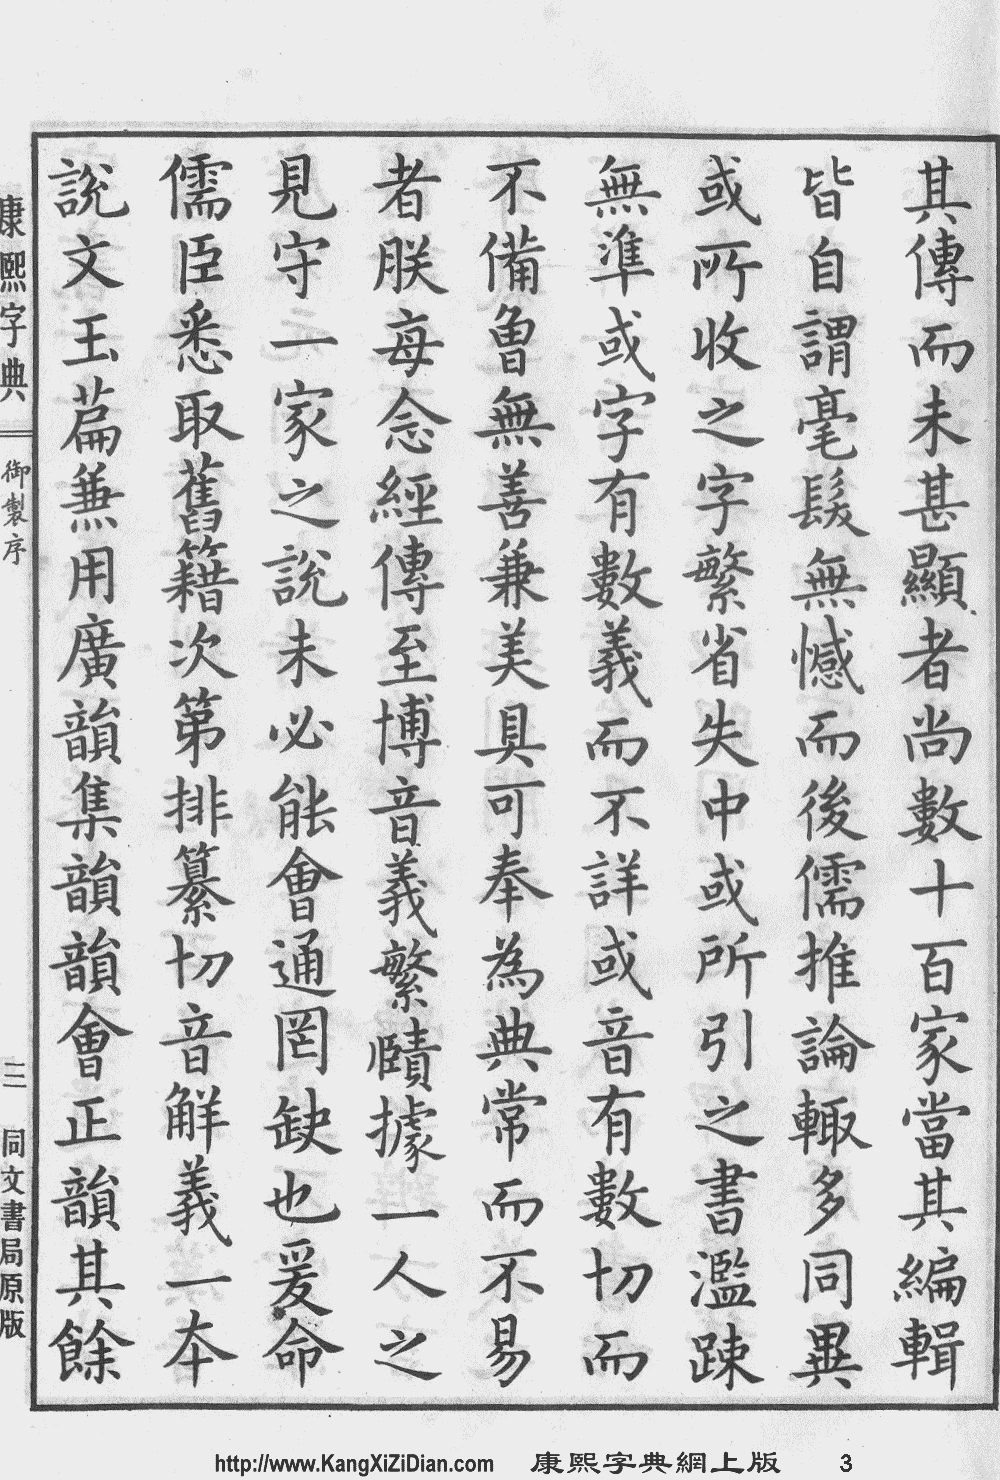 其傳而未甚顯者尚數十百家當其編輯
皆自謂毫髮無憾而後儒推論輙多同異
或所收之字繁省失中或所引之書濫踈
無準或字有數義而不詳或音有數切而
不備曾無善兼美具可奉為典常而不易
者朕每念經傳至博音義繁賾據一人之
見守一家之說未必能會通罔缺也爰命
儒臣悉取舊籍次第排纂切音解義一本
說文玉篇兼用廣韻集韻韻會正韻其餘
康熙字典
御製序
三
同文書局原版
http://www.KangXiZiDian.com 康熙字典網上版 3